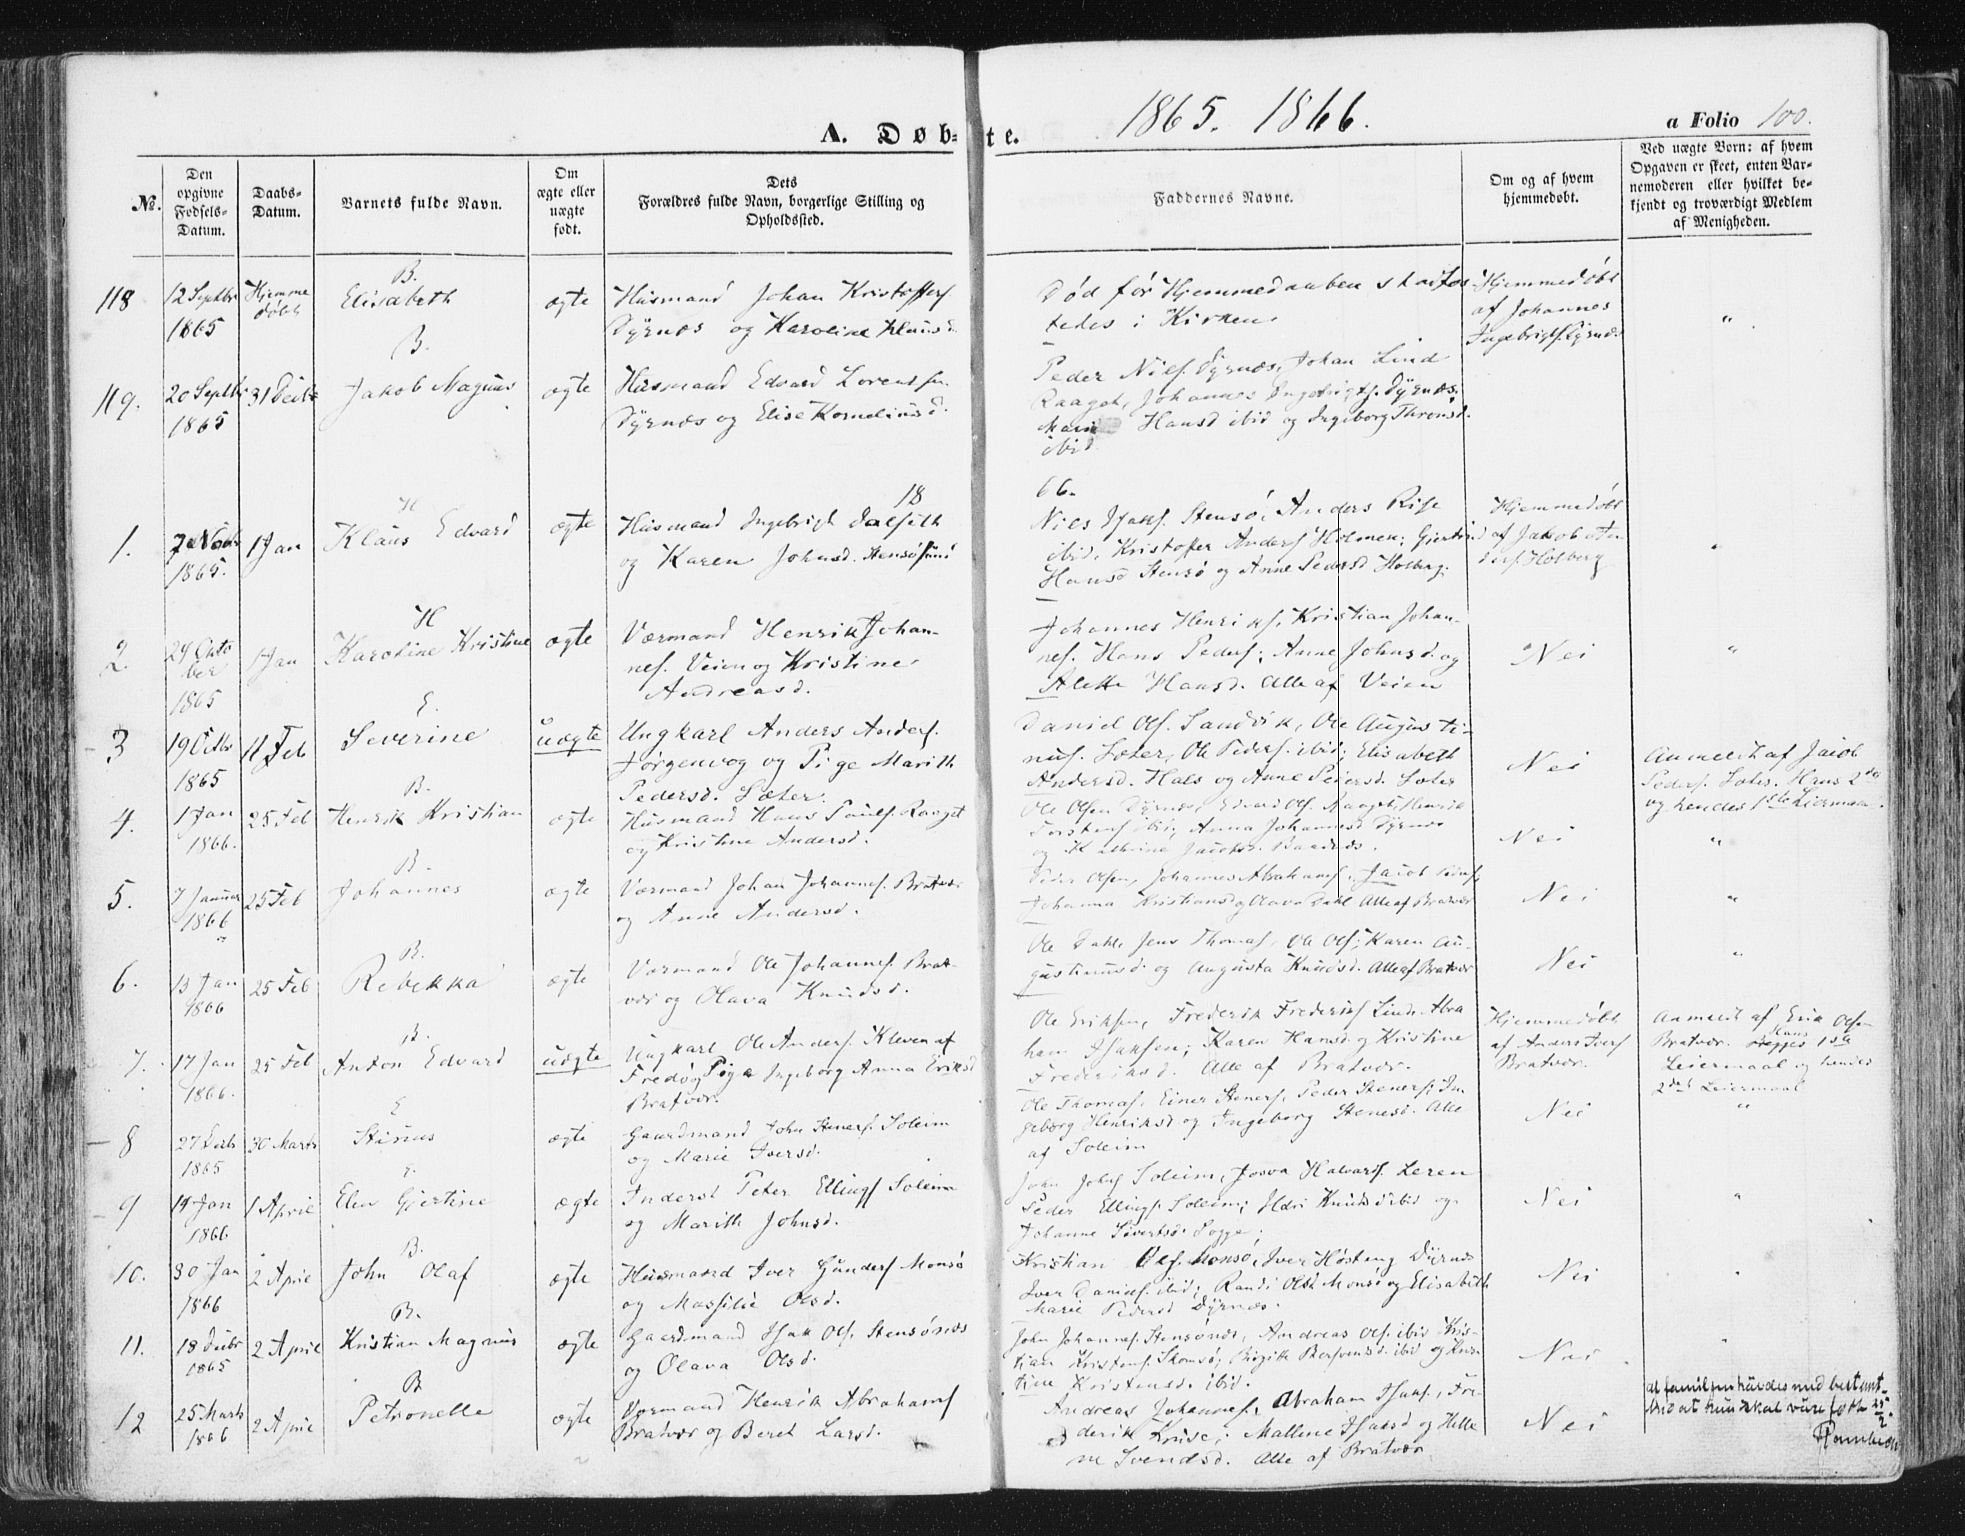 1865. 1866.
A. Døb- te.
a Folio 100.
№.
Den opgivne Fødsels-Datum.
Daabs-Datum.
Barnets fulde Navn.
Om ægte eller uægte født.
Dets Forældres fulde Navn, borgerlige Stilling og Opholdssted.
Faddernes Navne.
Om og af hvem hjemmedøbt.
Ved uægte Børn: af hvem Opgaven er skeet, enten Barnemoderen eller hvilket bekjendt og troværdigt Medlem af Menigheden.
B.
118 12 Septbr 1865 Hjemme døbt Elisabeth ægte
Husmand Johan Kristoffers.
Dyrnæs og Karoline Klausd.
Død før Hjemmedaaben stadfæs-
tedes i Kirken.
Hjemmedøbt
af Johannes
Ingebrigts. Dyrnæs
"
B.
119. 20 Septbr 1865 31 Decbr Jakob Magnus ægte
Husmand Edvard Lorents.
Dyrnæs og Elise Korneliusd.
Peder Niels. Dyrnæs, Johan Lind
Raaget, Johannes Ingebrigts. Dyrnæs;
Marie Hansd ibid og Ingeborg
ibid.
1866.
H
1. 7 Novbr 1865. 1 Jan Klaus Edvard ægte
Husmand Ingebrigt
og Karen Johnsd. Stensøsund
Niels Isaks. Stensø, Anders
ibid, Kristoffer Anders. Holmen; Gjertrud
Hansd Stensø og Anne Pedersd Holberg.
Hjemmedøbt
af Jakob An
ders. Holberg
"
H
2. 24 Octo ber 1865 1 Jan Karoline Kristine ægte
Værmand Henrik Johan-
nes. Veien og Kristine
Andreasd.
Johannes Henriks., Kristian Johan-
nes. Hans Peders; Anne Johnsd. og
Alette Hansd. Alle af Veien
Nei
"
E.
3 19 Octbr 1865 11 Feb Severine uægte
Ungkarl Anders Anders.
Jørgenvog og Pige Marith
Pedersd. Sæter.
Daniel Ols. Sandvik, Ole Augusti-
nus. Sæter, Ole Peders. ibid; Elisabeth
Andersd. Hals og Anne Pedersd. Sæter
Nei
Anmeldt af Jacob
Peders. Sæter. Hans 2det
og hendes 1ste Leiermaal.
B.
4. 1 Jan 1866. 25 Feb Henrik Kristian ægte
Husmand Hans Pauls. Raaget
og Kristine Andersd.
Ole Olsen Dyrnæs, Edvard Ols. Raaget, Henrik
Torstens. ibid; Anna Johannesd Dyrnæs
og Kathrine Jacobsd.
Nei
"
B.
5. 7 Januar 1866 25 Feb Johannes ægte
Værmand Johan Johannes. Bratvær
og Anne Andersd.
Peder Olsen, Johannes Abrahams., Jacob Peders,
Johanna Kristiansd og Olava Dahl Alle af Bratvær
Nei
"
B.
6. 13 Jan 1866 25 Feb Rebekka ægte
Værmand Ole Johannes. Brat-
vær og Olava Knudsd.
Ole Dahl, Jens Thomas., Ole Ols; Karen Au-
gustinusd. og Augusta Knudsd. Alle af Bratvær
Nei
"
B.
7. 17 Jan 1866. 25 Feb Anton Edvard uægte
Ungkarl Ole Anders. Kleven af
Fredø og Pige Ingeborg Anna Eriksd
Bratvær.
Ole Eriksen, Frederik Frederiks. Lind, Abra
ham Isaksen; Karen Hansd og Kristine
Frederiksd. Alle af Bratvær.
Hjemmedøbt
af Anders Ivers
Bratvær.
Anmeldt af Erik Olsen
Bratvær. Begges Hans 1ste
Leiermaal og hendes
2det Leiermaal
E
8 27 Decbr 1865 30 Marts Stinus ægte
Gaardmand John Steners. Soleim
og Marie Iversd.
Ole Thomas., Einer Steners., Peder Steners; In
geborg Henriksd og Ingeborg Stenersd. Alle
af Soleim
Nei
"
E.
9 14 Jan 1866 1 April Elen Gjertine ægte
Inderst Peter Ellings Soleim
og Marith Johnsd.
John Johs Soleim, Josva Halvards. Leren
Peder Ellings. Soleim; Ildri Knudsd ibid og
Johanne Sivertsd. Sogge.
Nei
"
B.
10. 30 Jan 1866 2 April John Olaf ægte
Husmand Iver Gunders Monsø
og Massilie Olsd.
Kristian Ols. Monsø, Iver Høsteng Dyrnæs
Iver Daniels. ibid; Randi Olsd. Monsø og Elisabeth
Marie Pedersd Dyrnæs.
Nei
"
B.
11. 18 Decbr 1865 2 April Kristian Magnus ægte
Gaardmand Isak Ols. Stensønæs
og Olava Olsd.
John Johannes. Stensønæs, Andreas Ols. ibid Kris-
tian Kristens. Skomsø; Birgitte Berhvensd. ibid og Kris-
tine Kristensd. ibid.
Nei
"
B
12 25 Marts 1866 2 April Petronelle ægte
Værmand Henrik Abrahams
Bratvær og Beret Larsd.
Andreas Johannes., Abraham Isaks., Fre-
derik Kruse; Mallene Isaksd og Helle
ne Svendsd. Alle af Bratvær
Nei
at familjen hævdes med bestemt-
hed at hun skal være født 25/2.